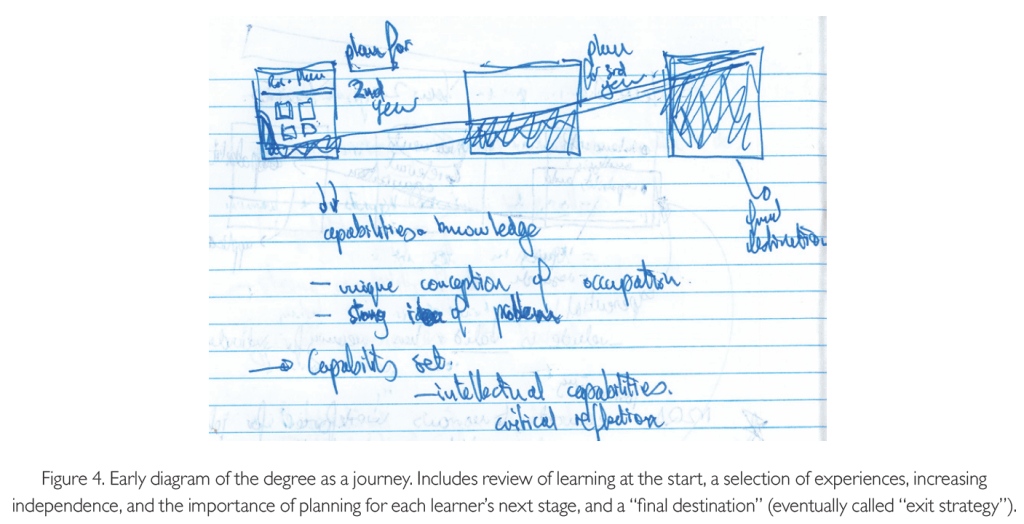 plan for
2nd
year
plan
for 3rd
year
final
destination
capabilities + knowledge
- unique conception of occupation.
- strong idea of problems
→ Capability set.
- intellectual capabilities.
critical reflection
Figure 4. Early diagram of the degree as a journey. Includes review of learning at the start, a selection of experiences, increasing
independence, and the importance of planning for each learner’s next stage, and a “final destination” (eventually called “exit strategy”).